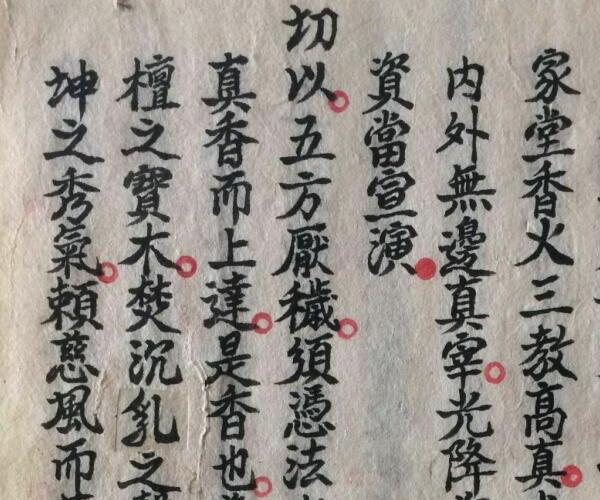 家堂香火三教高真
内外無邊真宰光降
資當宣演
切以五方厭穢須憑法
真香而上達是香也
檀之寶木焚沉乳之
坤之秀氣頼慈風而